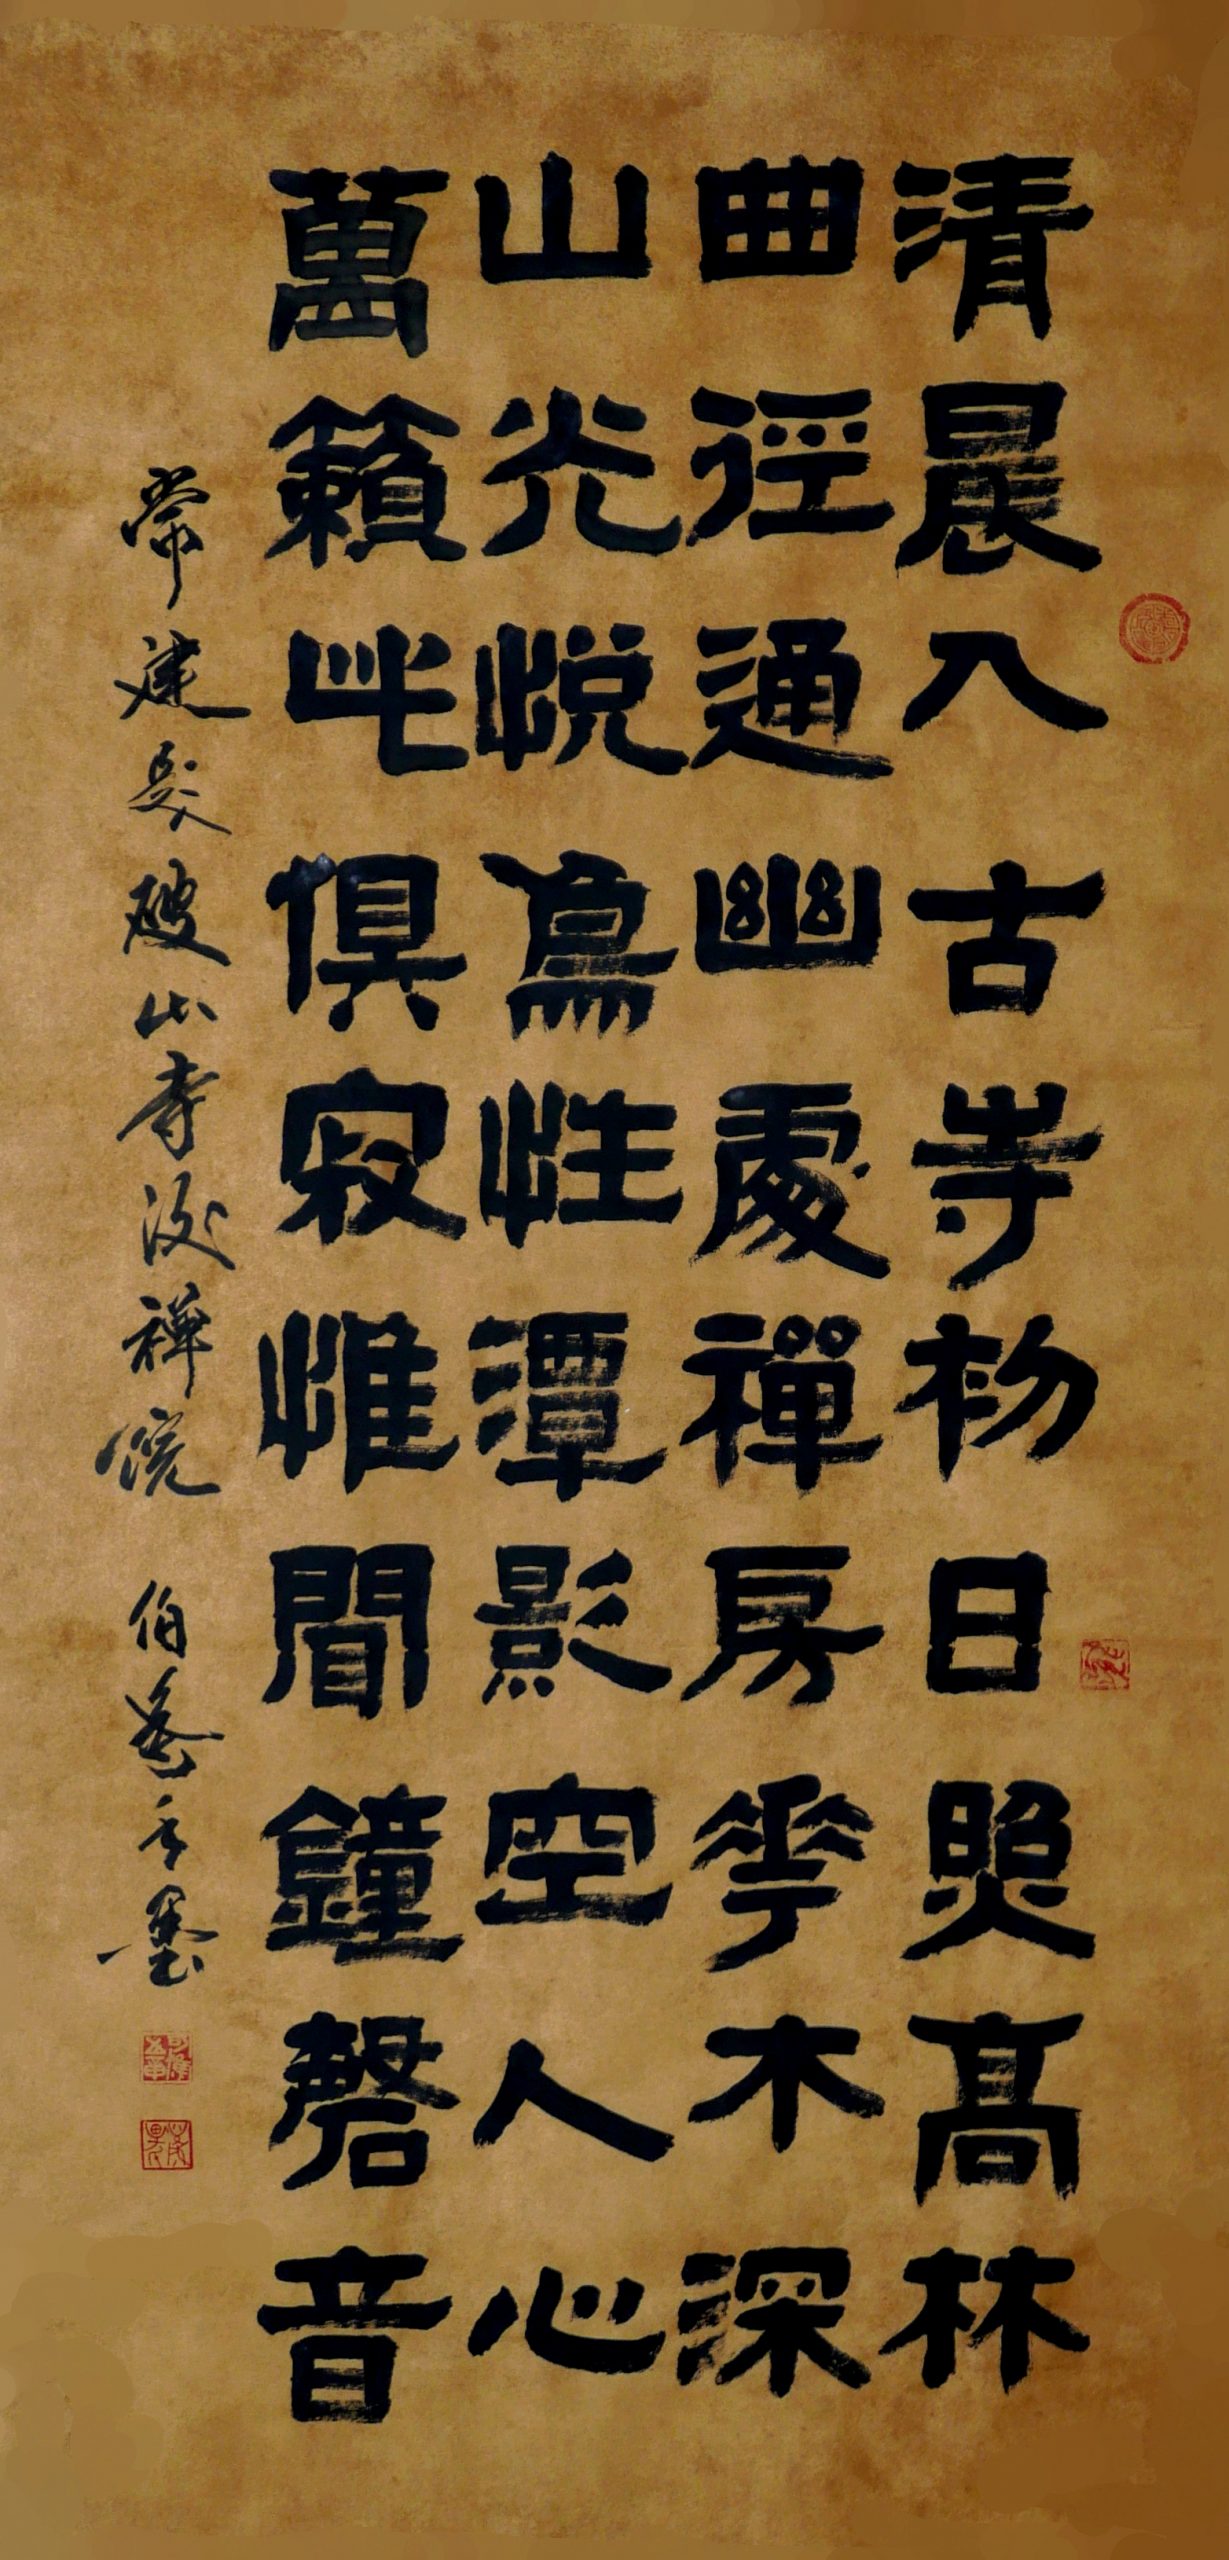 清晨入古寺初日照高林
曲徑通幽處禪房花木深
山光悅鳥性潭影空人心
萬籟此俱寂惟聞鐘磬音
常建題破山寺後禪院 伯 墨